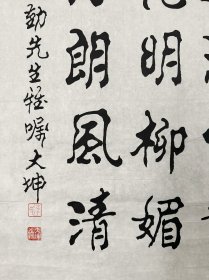 明柳媚
朗風清
勁先生雅囑大坤